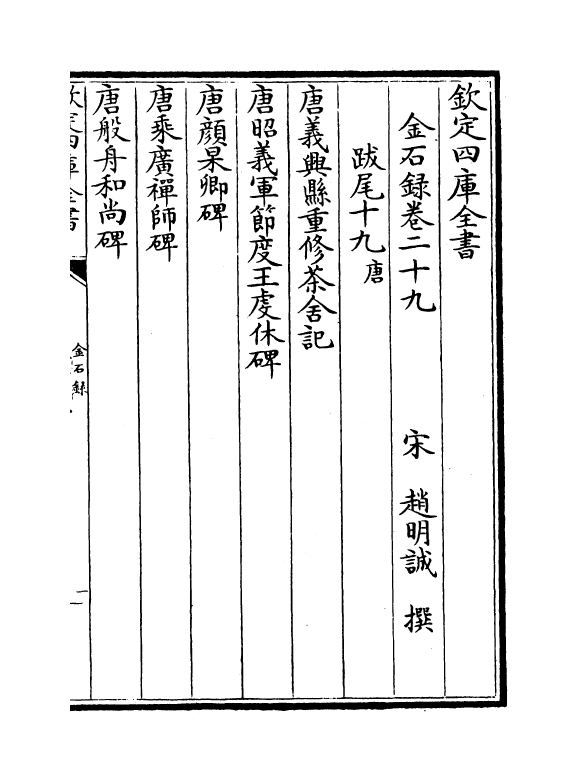 欽定四庫全書
金石録卷二十九
宋 趙明誠 撰
跋尾十九 唐
唐義興縣重修茶舍記
唐昭義軍節度王虔休碑
唐顔杲卿碑
唐乘廣禪師碑
唐般舟和尚碑
欽定四庫全書
金石錄